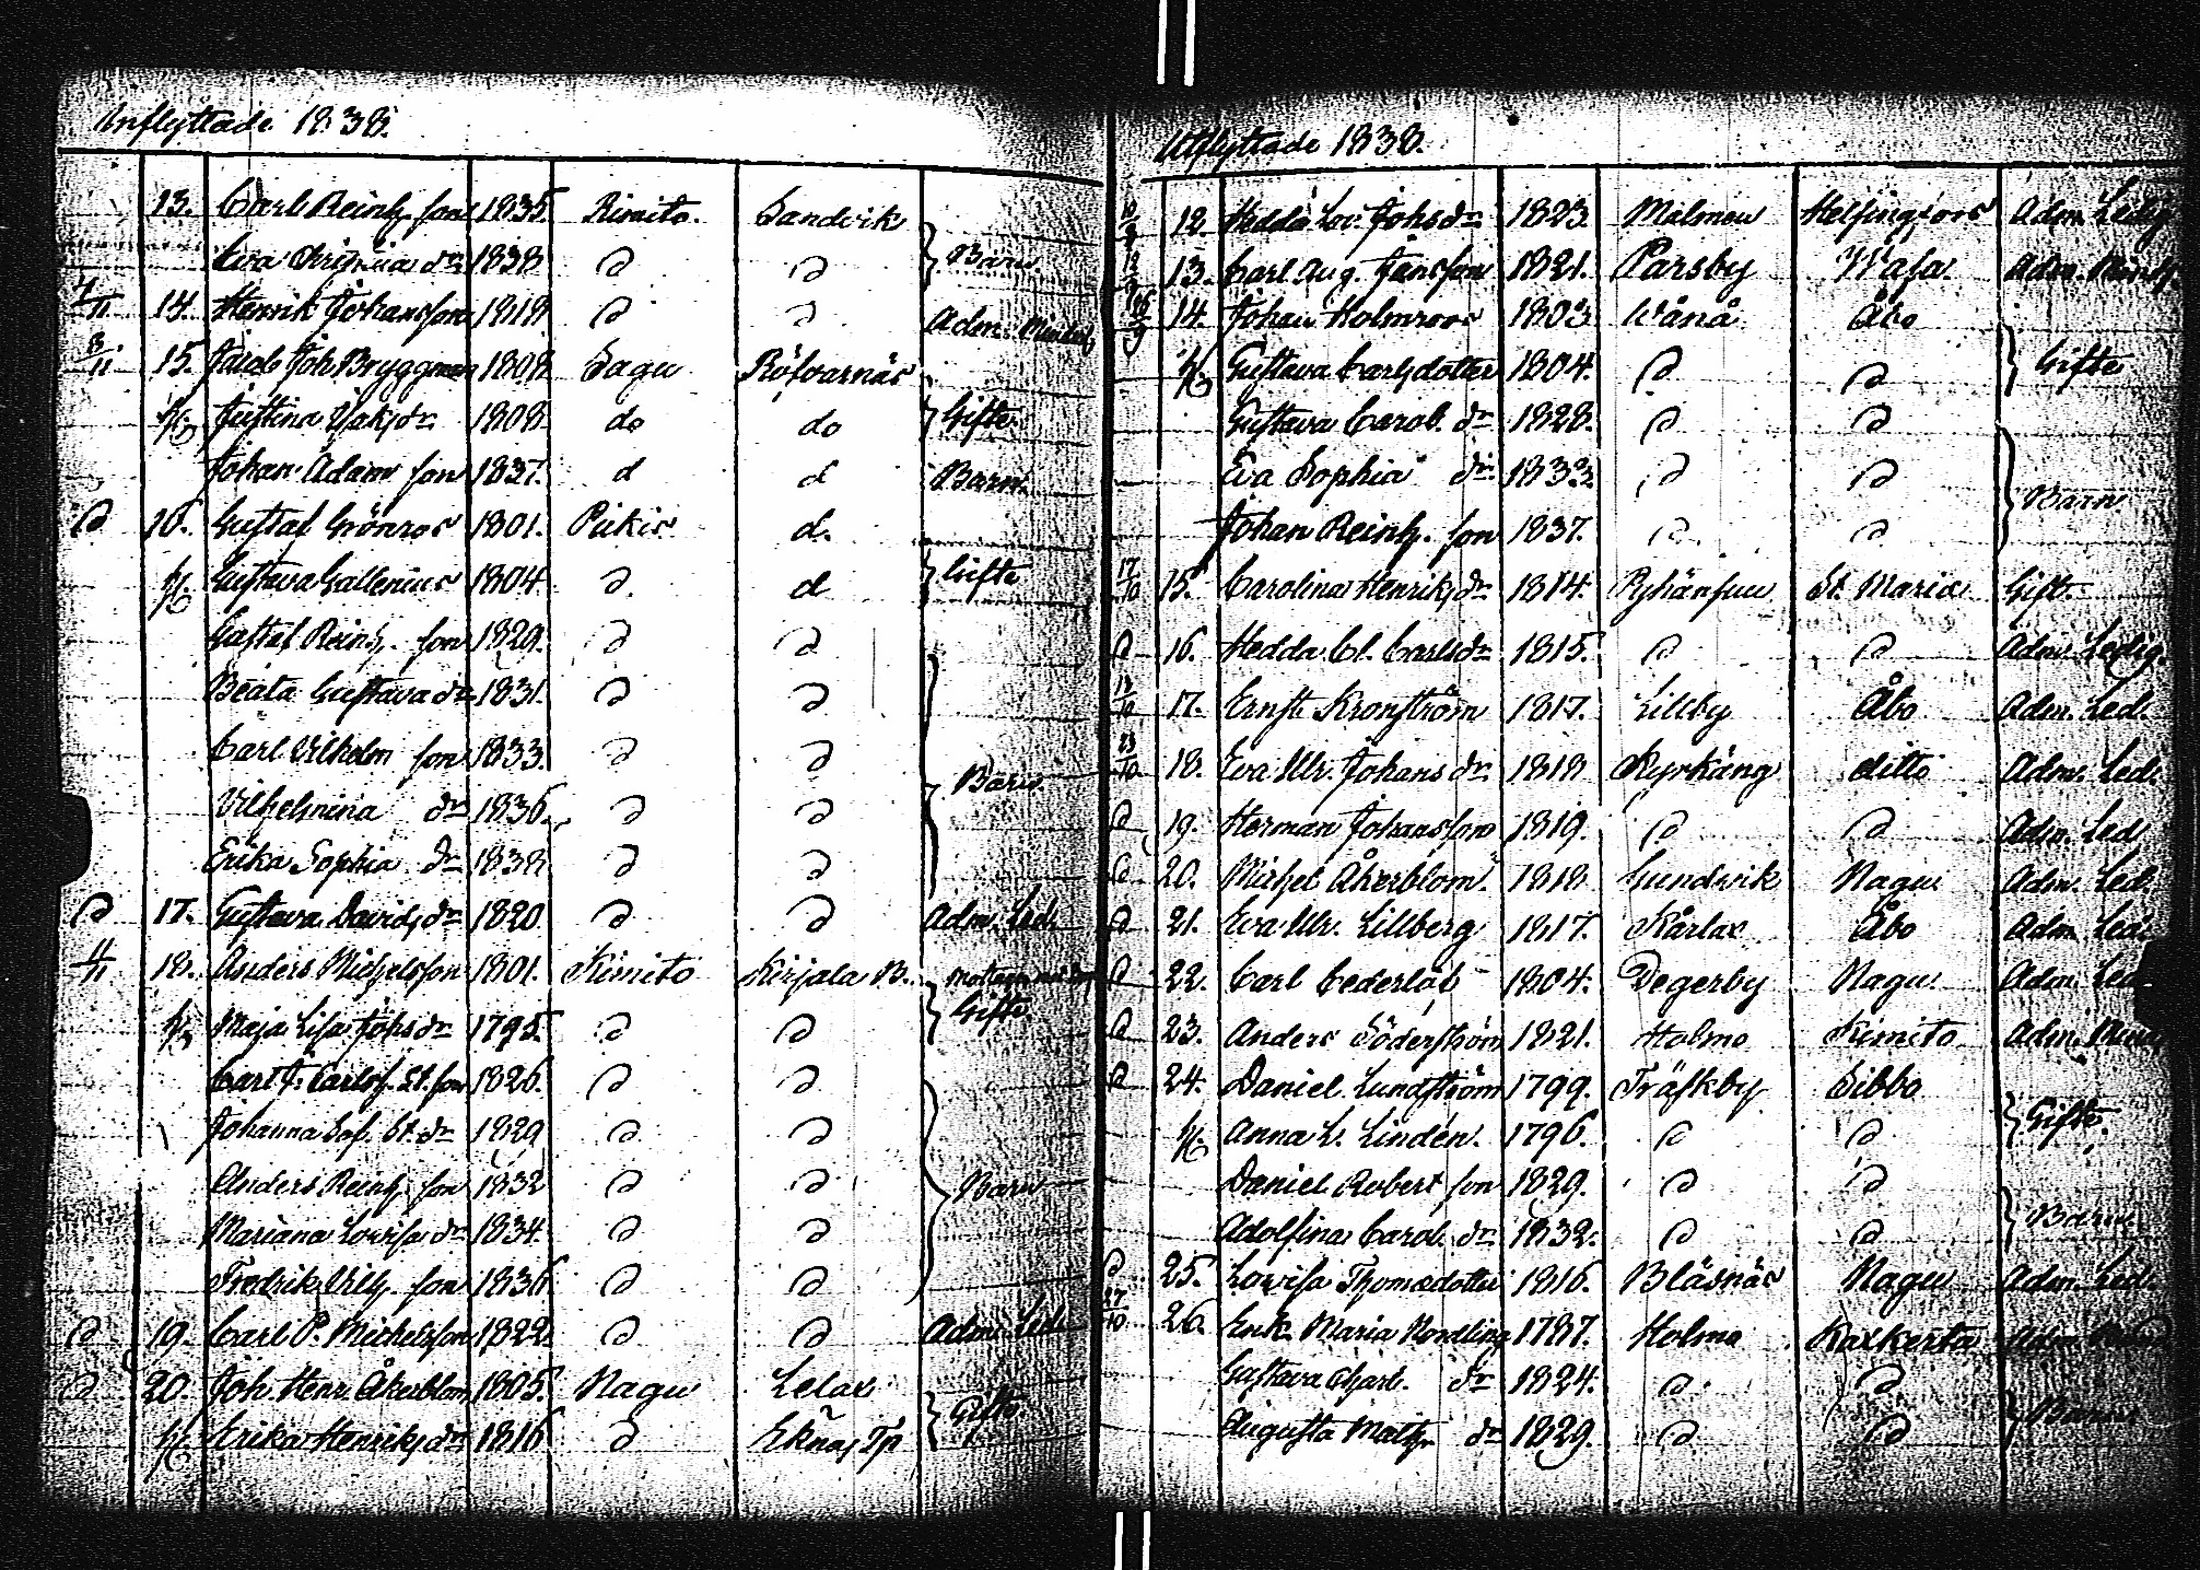 Inflyttade 1838.
13. Carl Reinh. son 1835. Rimito. Sandvik
Eva Kristina dr 1838 d d Barn
7/11 14. Henrik Johansson 1818 d d Adm.
8/11 15. Jacob Joh. Bryggman 1808 Sagu Röfvarnäs
h. Justina Isaksdr 1808 do do Gifte
Johan Adam son 1837. d d Barn.
d 16. Gustaf Grönros 1801. Piikis d.
h. Gustava Gallenius 1804 d. d Gifte
Gustaf Reinh. son 1829. d d
Beata Gustava dr 1831. d d
Carl Vilhelm son 1833. d d
Vilhelmina dr 1836. d d Barn
Erika Sophia dr 1838 d d
d 17. Gustava Davidsdr 1820 d d Adm. Led.
11/11 18. Anders Michelsson 1801. Kimito Kirjala B.
h. Maja Lisa Johsdr 1795. d d Gifte
Carl F. Carlsf. St. son 1826. d d
Johanna Sof. St. dr 1829 d d
Anders Reinh. son 1832 d d Barn
Mariana Lovisa dr 1834. d d
Fredrik Vilh. son 1836 d d
d 19. Carl P. Michelsson 1822. d d Adm. Led.
d 20. Joh. Henr. Åkerblom 1805. Nagu Lelax
h. Erika Henriksdr 1816 d Eknäs Tp Gifte
Utflyttade 1838.
12. Hedda Lov. Johsdr 1823. Malmen Helsingfors Adm. Ledig
13. Carl Aug. Jansson 1821. Parsby Wasa. Adm.
16/9 14. Johan Holmroos 1803 Wånå Åbo
h. Gustava Carlsdotter 1804. d d Gifte
Gustava Carol. dr 1828. d d
Eva Sophia dr 1833. d d
Johan Reinh. son 1837. d d Barn
17/10 15. Carolina Henriksdr 1814. Pyhänsuu St. Marie Gift
d 16. Hedda Cl. Carlsdr 1815. d d Adm. Ledig.
18/10 17. Ernst Kronström 1817. Lillby Åbo Adm. Led.
23/10 18. Eva Ulr. Johansdr 1818 Kyrkäng ditto Adm. Led.
d 19. Herman Johansson 1819. d d Adm. Led
d 20. Michel Åkerblom. 1818 Gundvik Nagu Adm. Led.
d 21. Eva Ulr. Lillberg 1817. Kårlax Åbo Adm. Led.
d 22. Carl Cederlöf 1804. Degerby Nagu Adm. Led.
d 23. Anders Söderström 1821. Holmo Kimito Adm.
d 24. Daniel Lundström 1799. Träskby Sibbo
h. Anna L. Lindén. 1796. d d Gifte.
Daniel Robert son 1829. d d
Adolfina Carol. dr 1832. d d Barn.
d 25. Lovisa Thomasdotter 1816. Bläsnäs Nagu Adm. Led.
27/10 26. Enk. Maria Nordling 1787. Holmo Kaxkerta Adm.
Gustava Charl. dr 1824. d d
Augusta Math. dr 1829. d d Barn